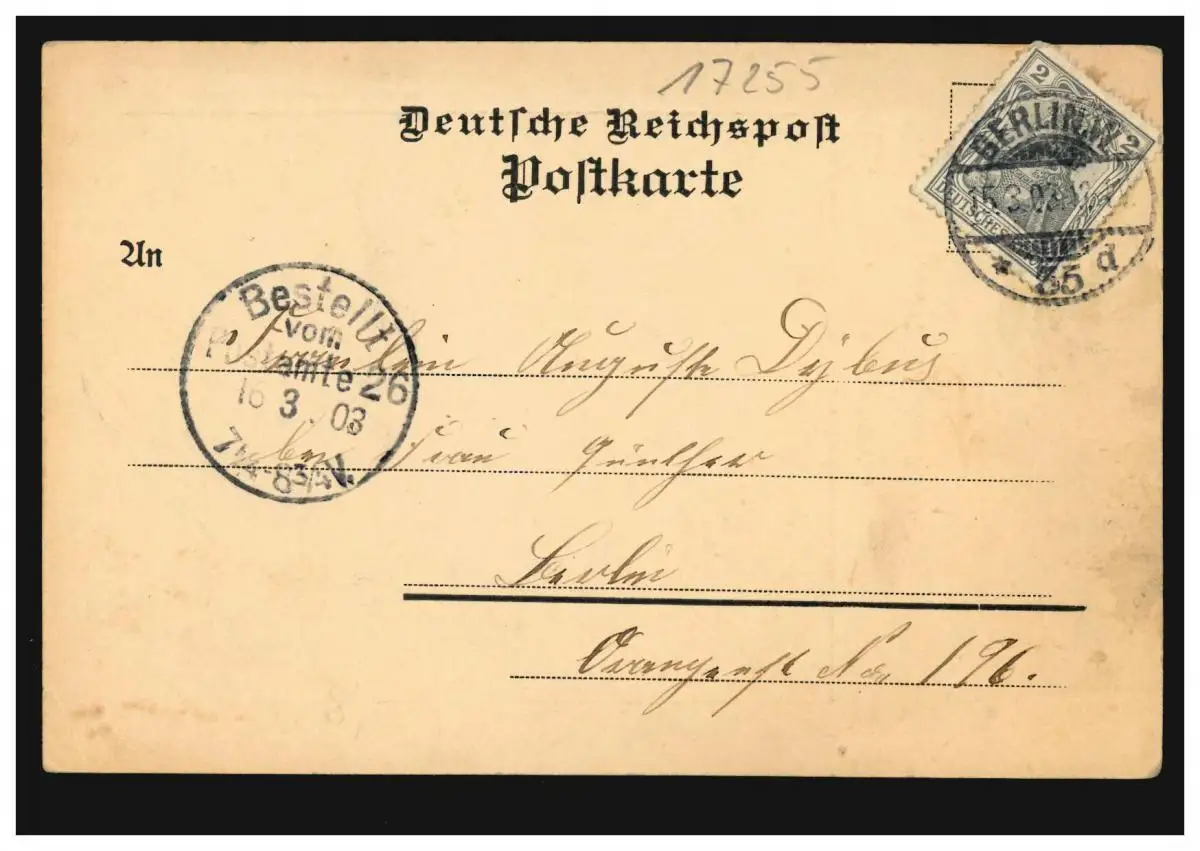 17255
Deutsche Reichspost
Postkarte
2 2
DEUTSCHES
BERLIN.W.
15.3.03.
* 35 d
An
Bestellt
vom
Postamte 26
16 3 03
7¼-8¾V.
Fräulein Auguste Dybus
bei Frau Günther
Berlin
No 196.